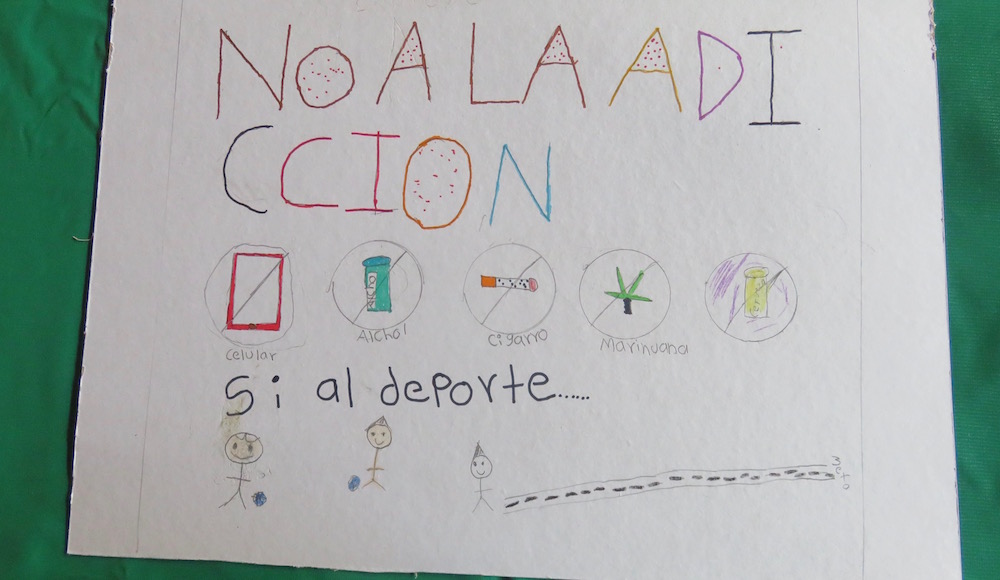 NO A LA ADI
CCION
Alchol
Celular
Alchol
Cigarro
Marihuana
Si al deporte......